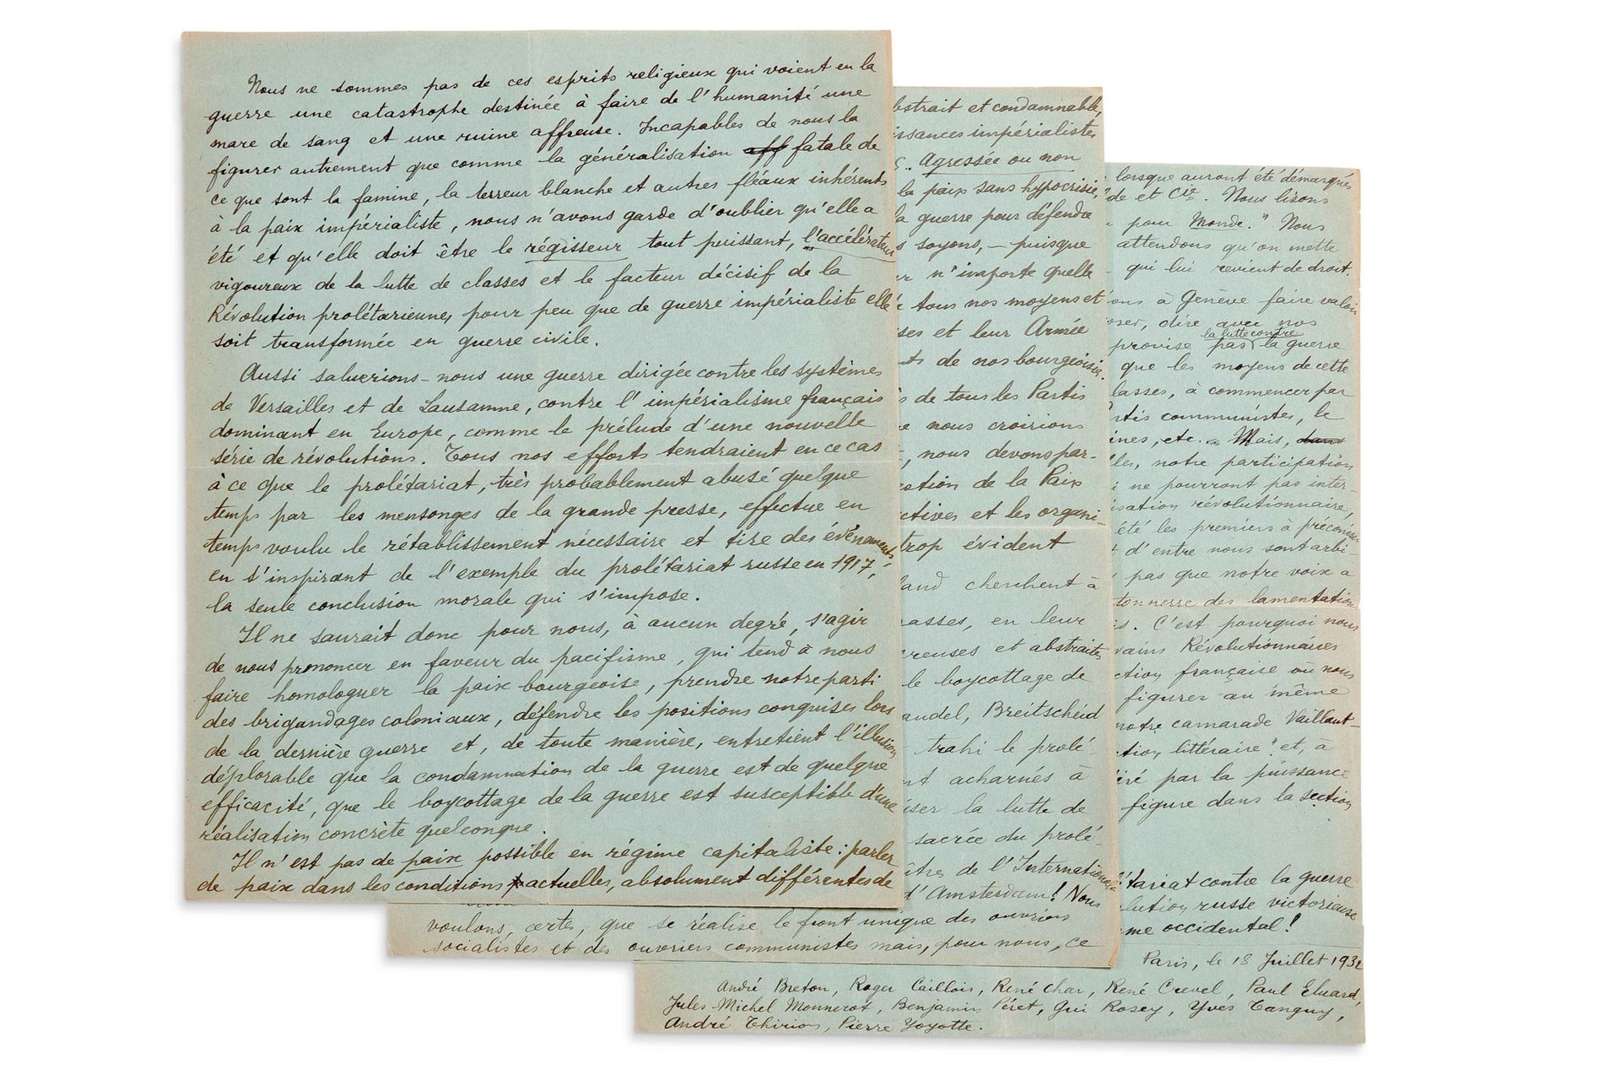 Nous ne sommes pas de ces esprits religieux qui voient en la
guerre une catastrophe destinée à faire de l'humanité une
mare de sang et une ruine affreuse. Incapables de nous la
figurer autrement que comme la généralisation aff fatale de
ce que sont la famine, la terreur blanche et autres fléaux inhérents
à la paix impérialiste, nous n'avons garde d'oublier qu'elle a
été et qu'elle doit être le régisseur tout puissant, l'accélérateur
vigoureux de la lutte de classes et le facteur décisif de la
Révolution prolétarienne, pour peu que de guerre impérialiste elle
soit transformée en guerre civile.
Aussi saluerions-nous une guerre dirigée contre les systèmes
de Versailles et de Lausanne, contre l'impérialisme français
dominant en Europe, comme le prélude d'une nouvelle
série de révolutions. Tous nos efforts tendraient en ce cas
à ce que le prolétariat, très probablement abusé quelque
temps par les mensonges de la grande presse, effectue en
temps voulu le rétablissement nécessaire et tire des événements
en s'inspirant de l'exemple du prolétariat russe en 1917,
la seule conclusion morale qui s'impose.
Il ne saurait donc pour nous, à aucun degré, s'agir
de nous prononcer en faveur du pacifisme, qui tend à nous
faire homologuer la paix bourgeoise, prendre notre parti
des brigandages coloniaux, défendre les positions conquises lors
de la dernière guerre et, de toute manière, entretient l'illusion
déplorable que la condamnation de la guerre est de quelque
efficacité, que le boycottage de la guerre est susceptible d'une
réalisation concrète quelconque.
Il n'est pas de paix possible en régime capitaliste : parler
de paix dans les conditions actuelles, absolument différentes de
bstrait et condamnable,
issances impérialistes
Agressée ou non
la paix sans hypocrisie,
la guerre pour défendre
s soyons, — puisque
n'importe quelle
tous nos moyens et
ses et leur Armée
ts de nos bourgeoisies.
s de tous les Partis
e nous croirions
, nous devons par-
cation de la Paix
ctives et les organi-
trop évident
land cherchent à
asses, en leur
creuses et abstraites
le boycottage de
audel, Breitscheid
trahi le prolé-
nt acharnés à
iser la lutte de
sacrée du prolé-
itres de l'Internationale
d'Amsterdam ! Nous
voulons, certes, que se réalise le front unique des ouvriers
socialistes et des ouvriers communistes mais, pour nous, ce
lorsque auront été démarqués
de et Cie. Nous lisons
pour Monde." Nous
attendons qu'on mette
qui lui revient de droit.
ons à Genève faire valoir
oser, dire avec nos
la lutte contre
provise pas la guerre
que les moyens de cette
lasses, à commencer par
rtis communistes, le
ines, etc. Mais, dans
les, notre participation
ne pourront pas inter-
isation révolutionnaire,
été les premiers à préconiser
t d'entre nous sont arbi
pas que notre voix a
tonnerre des lamentations
is. C'est pourquoi nous
vains Révolutionnaires
ction française où nous
figurer au même
notre camarade Vaillant-
tion littéraire" et, à
iré par la puissance
figure dans la section
létariat contre la guerre
lution russe victorieuse
me occidental !
Paris, le 18 Juillet 1932
André Breton, Roger Caillois, René Char, René Crevel, Paul Eluard,
Jules-Michel Monnerot, Benjamin Péret, Gui Rosey, Yves Tanguy,
André Thirion, Pierre Yoyotte.